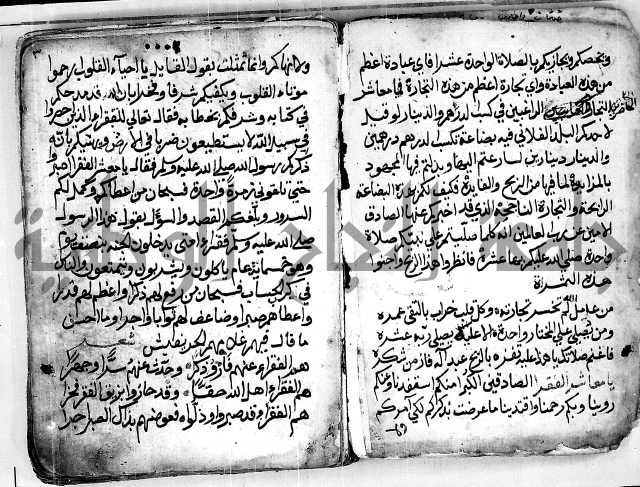 ويخصكم ويجازيكم بالصلاة الواحدة عشرا فاي عبادة اعظم
من هذه العبادة واي تجارة اعظم من هذه التجارة فيا معاشر
التجار الراغبين في كسب الدرهم والدينار لو قيل
لاحدكم البلد الفلاني فيه بضاعة تكسب الدرهم درهمين
والدينار دينارين لسارعتم اليها وبذلتم فيها المجهود
بالمزايدة لما فيها من الربح والفايدة فكيف لكم بهذه البضاعة
الرابحة والتجارة الناجحة الذي قد اخبركم عنها الصادق
الامين عن رب العالمين انه كلما صليتم على نبيكم صلاة
واحدة صلى الله عليكم بها عشرة فانظروا هذا الربح واغتنوا
هذه البشراة
من عامل الله لم تخسر تجارته وكل قلب خراب بالتقى عمره
ومن يصلي على المختار واحدة عليه يصلي ربه عشرة
فاغنم صلاتك يا هذا عليه تفز بالربح عبد اله فاز من شكره
يا معاشر الفقرا الصادقين اكبوا منكم استفدنا وعنكم
روينا وبكم رحمنا واقتدينا ما عرضت بذكركم لكي امركم
ولانها كم وانما تمثلت بقول القايل يا احباء القلوب ارحموا
موتاء القلوب ويكفيكم شرفا وفخرا بان الله قد مدحكم
في كتابه وشرفكم بخطابه فقال تعالى للفقراء الذين احصروا
في سبيل الله لا يستطيعون ضربا في الارض ويهنيكم بانه
ذكركم رسول الله صلى الله عليه وسلم فقال يا معشر الفقرا اصبروا
حتى تلقوني زمرة واحدة فسبحان من اعطاكم وكمل لكم
السرور وبلغكم القصد والسؤل بقول هذا الرسول
صلى الله عليه وسلم فقراء امتي يدخلون الجنة بنصف يوم
وهو خمسماية عام ياكلون ويشربون ويتمتعون والناس
في كرب الحساب فسبحان من رفع لهم ذكرا واعظم لهم قدرا
واعطاهم صبرا وضاعف لهم ثوابا واجرا وما احسن
ما قال فيهم غلامهم الحريفيش
شعر
هم الفقراء عنهم فاز ذكرا وحدث عنهم سرا وجهرا
هم الفقراء اهل الله حقا وقد حازوا بزيق الفقر فخرا
هم الفقراء قد صبروا وذكواه فعوضهم بذاك الصبر اجرا